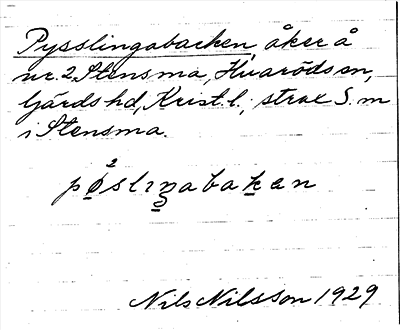 Pysslingabacken, åker å
nr. 2 Stensma, Hvaröds sn,
Gärds hd, Krist. l.; strax S. m
i Stensma.
pøslıŋabakan
Nils Nilsson 1929